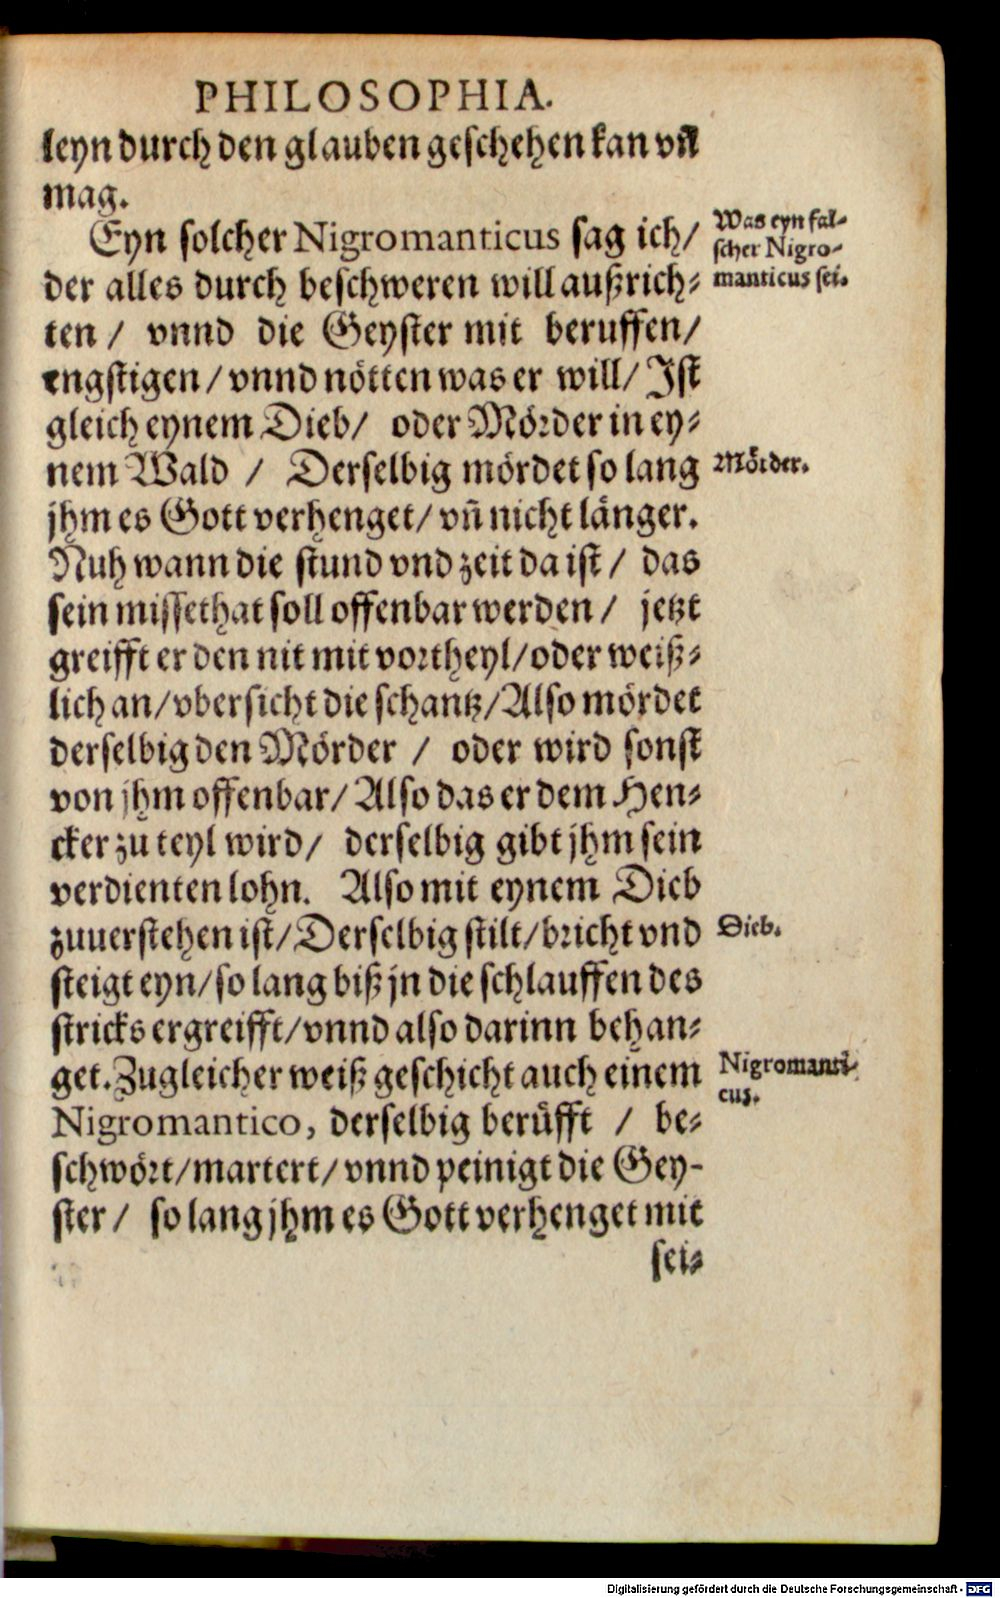 PHILOSOPHIA.
leyn durch den glauben geschehen kan vñ
mag.
Eyn solcher Nigromanticus sag ich/
Was eyn fal-
scher Nigro-
manticus sei.
der alles durch beschweren will außrich-
ten / vnnd die Geyster mit beruffen/
engstigen/ vnnd nötten was er will/ Ist
gleich eynem Dieb/ oder Mörder in ey-
nem Wald / Derselbig mördet so lang
Mörder.
jhm es Gott verhenget/ vñ nicht länger.
Nuh wann die stund vnd zeit da ist / das
sein missethat soll offenbar werden / jetzt
greifft er den nit mit vortheyl/oder weiß-
lich an/vbersicht die schantz/Also mördet
derselbig den Mörder / oder wird sonst
von jhm offenbar/ Also das er dem Hen-
cker zu teyl wird/ derselbig gibt jhm sein
verdienten lohn. Also mit eynem Dieb
zuuerstehen ist/ Derselbig stilt/bricht vnd
Dieb.
steigt eyn/so lang biß jn die schlauffen des
stricks ergreifft/vnnd also darinn behan-
get. Zugleicher weiß geschicht auch einem
Nigromanti-
cus.
Nigromantico, derselbig berüfft / be-
schwört/martert/vnnd peinigt die Gey-
ster / so lang jhm es Gott verhenget mit
sei-
Digitalisierung gefördert durch die Deutsche Forschungsgemeinschaft - DFG